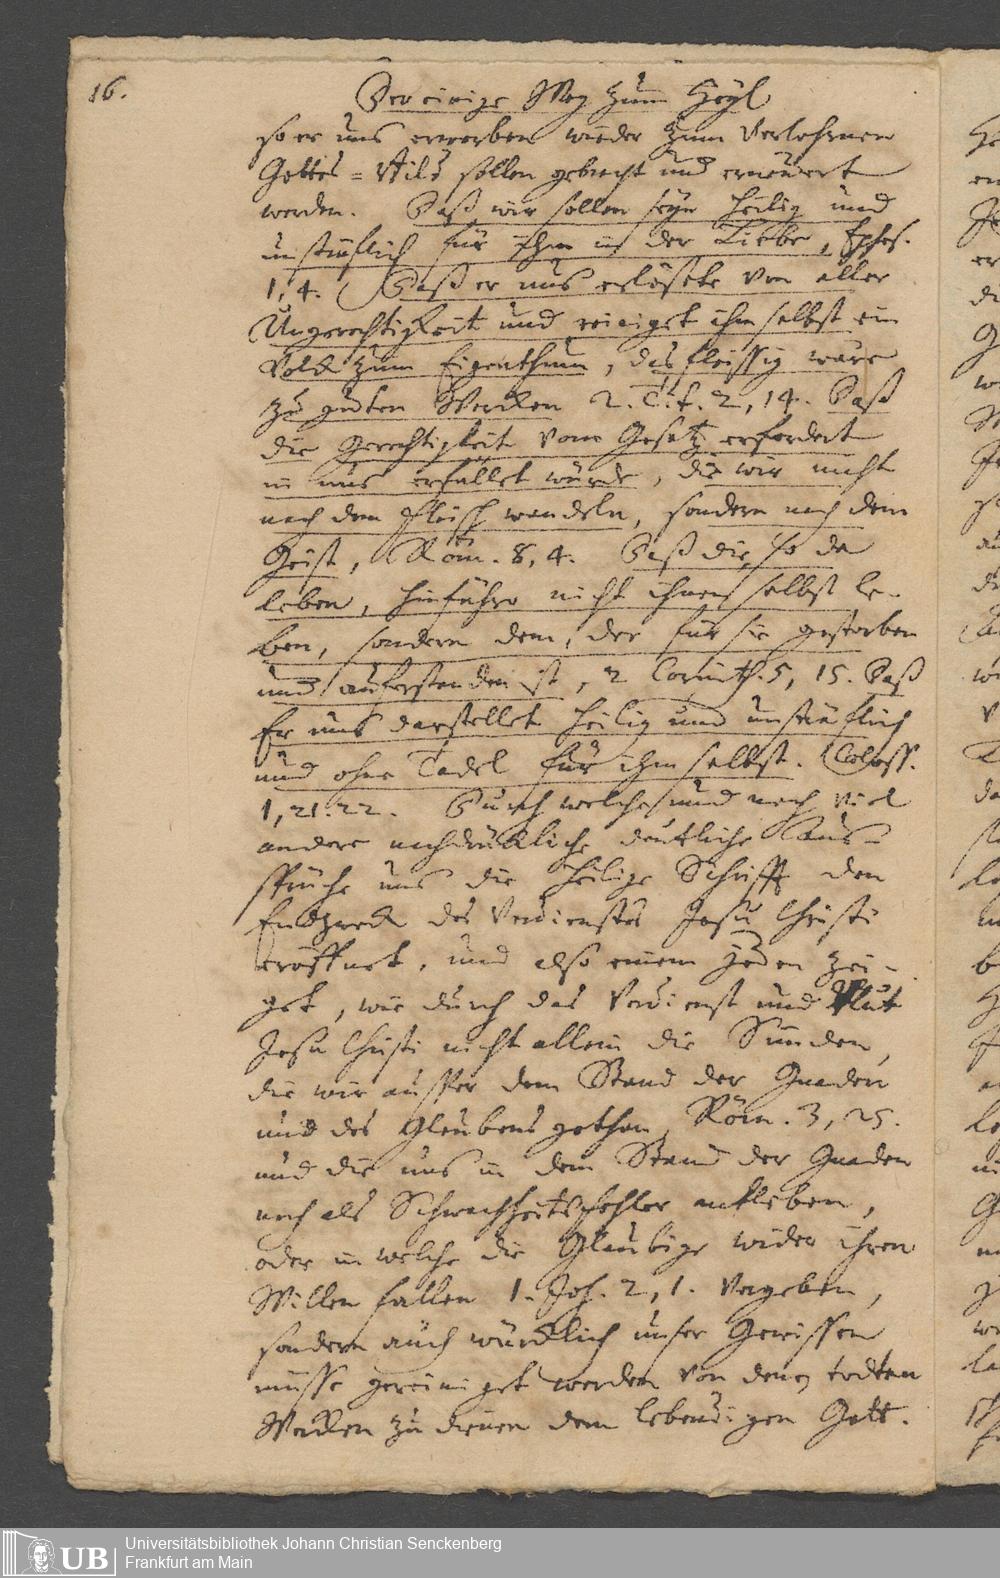 16.
Der einige Weg zum Heyl
so er uns erworben wieder zum Verlohrnen
Gottes-Bild sollen gebracht und erneuert
werden. Daß wir sollen seyn heilig und
unsträflich für ihm in der Liebe, Ephes.
1, 4. Daß er uns erlösete von aller
Ungerechtigkeit und reiniget ihm selbst ein
Volck zum Eigenthum, das fleissig wäre
zu guten Wercken 2. Tit. 2, 14. Daß
die Gerechtigkeit vom Gesetz erfordert
in uns erfüllet würde, die wir nicht
nach dem Fleisch wandeln, sondern nach dem
Geist, Röm. 8, 4. Daß die, so da
leben, hinführo nicht ihnen selbst le-
ben, sondern dem, der für sie gestorben
und auferstanden ist, 2 Corinth. 5, 15. Daß
Er uns darstellet heilig und unsträflich
und ohne Tadel für ihm selbst. Coloss.
1, 21. 22. Durch welche und noch viel
andere nachdrückliche deutliche Aus-
sprüche uns die heilige Schrifft den
Endzweck des Verdienstes Jesu Christi
eröffnet, und also einem jeden zei-
get, wie durch das Verdienst und Blut
Jesu Christi nicht allein die Sünden,
die wir ausser dem Stand der Gnaden
und des Glaubens gethan, Röm. 3, 25.
und die uns in dem Stand der Gnaden
noch als Schwachheitsfehler ankleben,
oder in welche die Gläubige wider ihren
Willen fallen 1. Joh. 2, 1. vergeben,
sondern auch würcklich unser Gewissen
müsse gereiniget werden von denen todten
Wercken zu dienen dem lebendigen Gott.
UB
Universitätsbibliothek Johann Christian Senckenberg
Frankfurt am Main